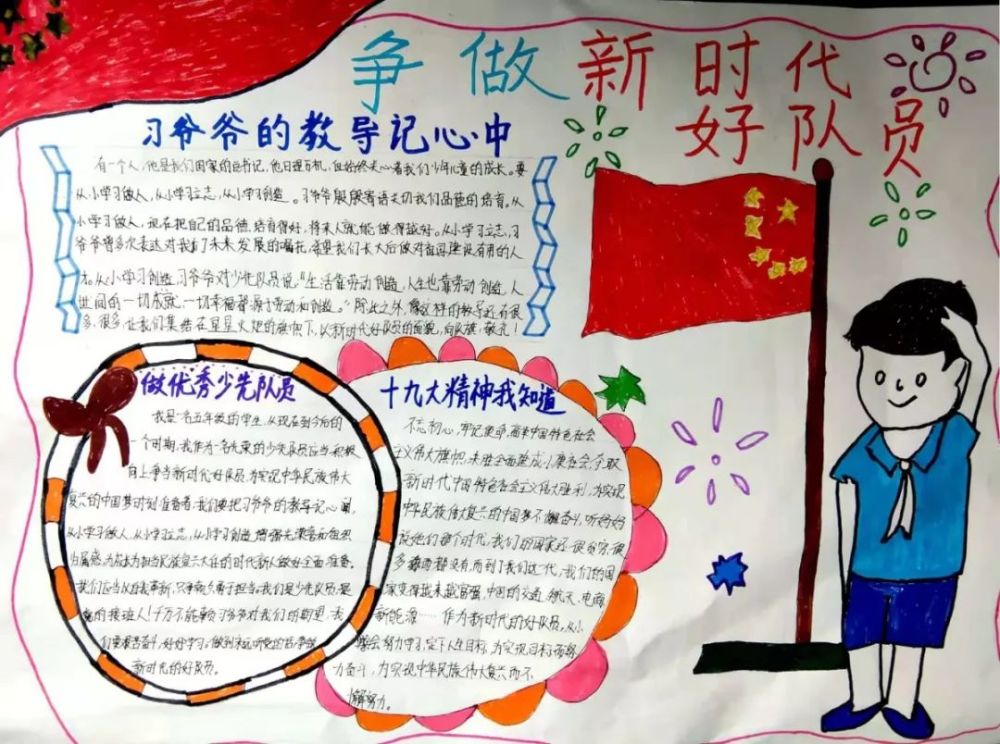 争做新时代
好队员
习爷爷的教导记心中
有一个人,他是我们国家的总书记,他日理万机,但始终关心着我们少年儿童的成长。要
从小学习做人,从小学习立志,从小学习创造。习爷爷殷殷寄语关切我们品德的培育。从
小学习做人,现在把自己的品德培育得好,将来人就能做得越好。从小学习立志,习
爷爷曾多次表达对我们了未来发展的嘱托,希望我们长大后做对祖国建设有用的人
才。从小学习创造,习爷爷对少先队员说:"生活靠劳动创造,人生也靠劳动创造,人
世间的一切成就,一切幸福都源于劳动和创造。"除此之外,像这样的教导还有很
多,很多,让我们集结在星星火炬的旗帜下,以新时代好队员的面貌,向队旗,敬礼!
做优秀少先队员
我是一名五年级的学生,从现在到今后的
一个时期,我作为一名光荣的少先队员应当积极
向上,争当新时代好队员,为实现中华民族伟大
复兴的中国梦时刻准备着,我们要把习爷爷的教导记心间,
从小学习做人,从小学习立志,从小学习创造,增强光荣感和组织
归属感,为成为担当民族复兴大任的时代新人做好全面准备。
我们应当从自我革新,只争朝夕勇于担当。我们是少先队员,是
的接班人!千万不能辜负习爷爷对我们的期望,我
们要艰苦奋斗,好好学习。做到永远听党的话争做
新时代的好队员。
十九大精神我知道
不忘初心,牢记使命,高举中国特色社会
主义伟大旗帜,决胜全面建成小康社会,夺取
新时代中国特色社会主义伟大胜利,为实现
中华民族伟大复兴的中国梦不懈奋斗,听妈妈
说他们那个时代,我们的国家还很贫穷,很
多都没有,而到了我们这一代,我们的国
家变得越来越富强,中国的交通、航天、电商
新能源……作为新时代的好队员,从小
学会努力学习,定下人生目标,为实现目标而努
力奋斗,为实现中华民族伟大复兴而不
懈努力。